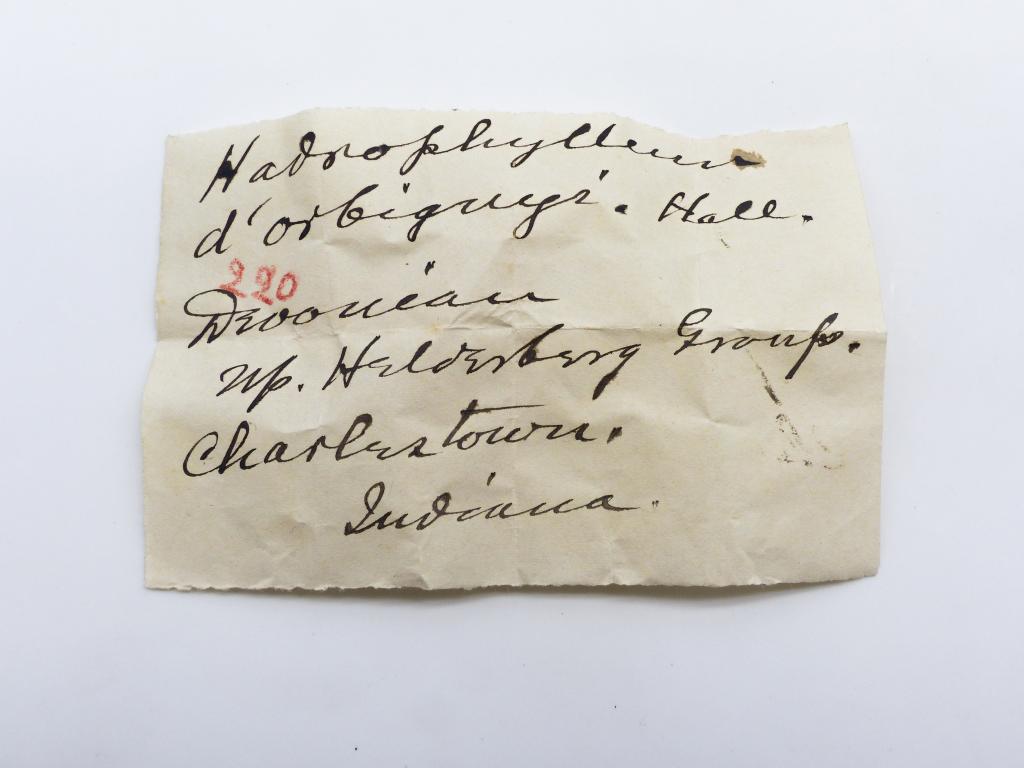 Hadrophyllum
d'orbignyi. Hall.
220
Devonian
up. Helderberg Group.
Charlestown.
Indiana.